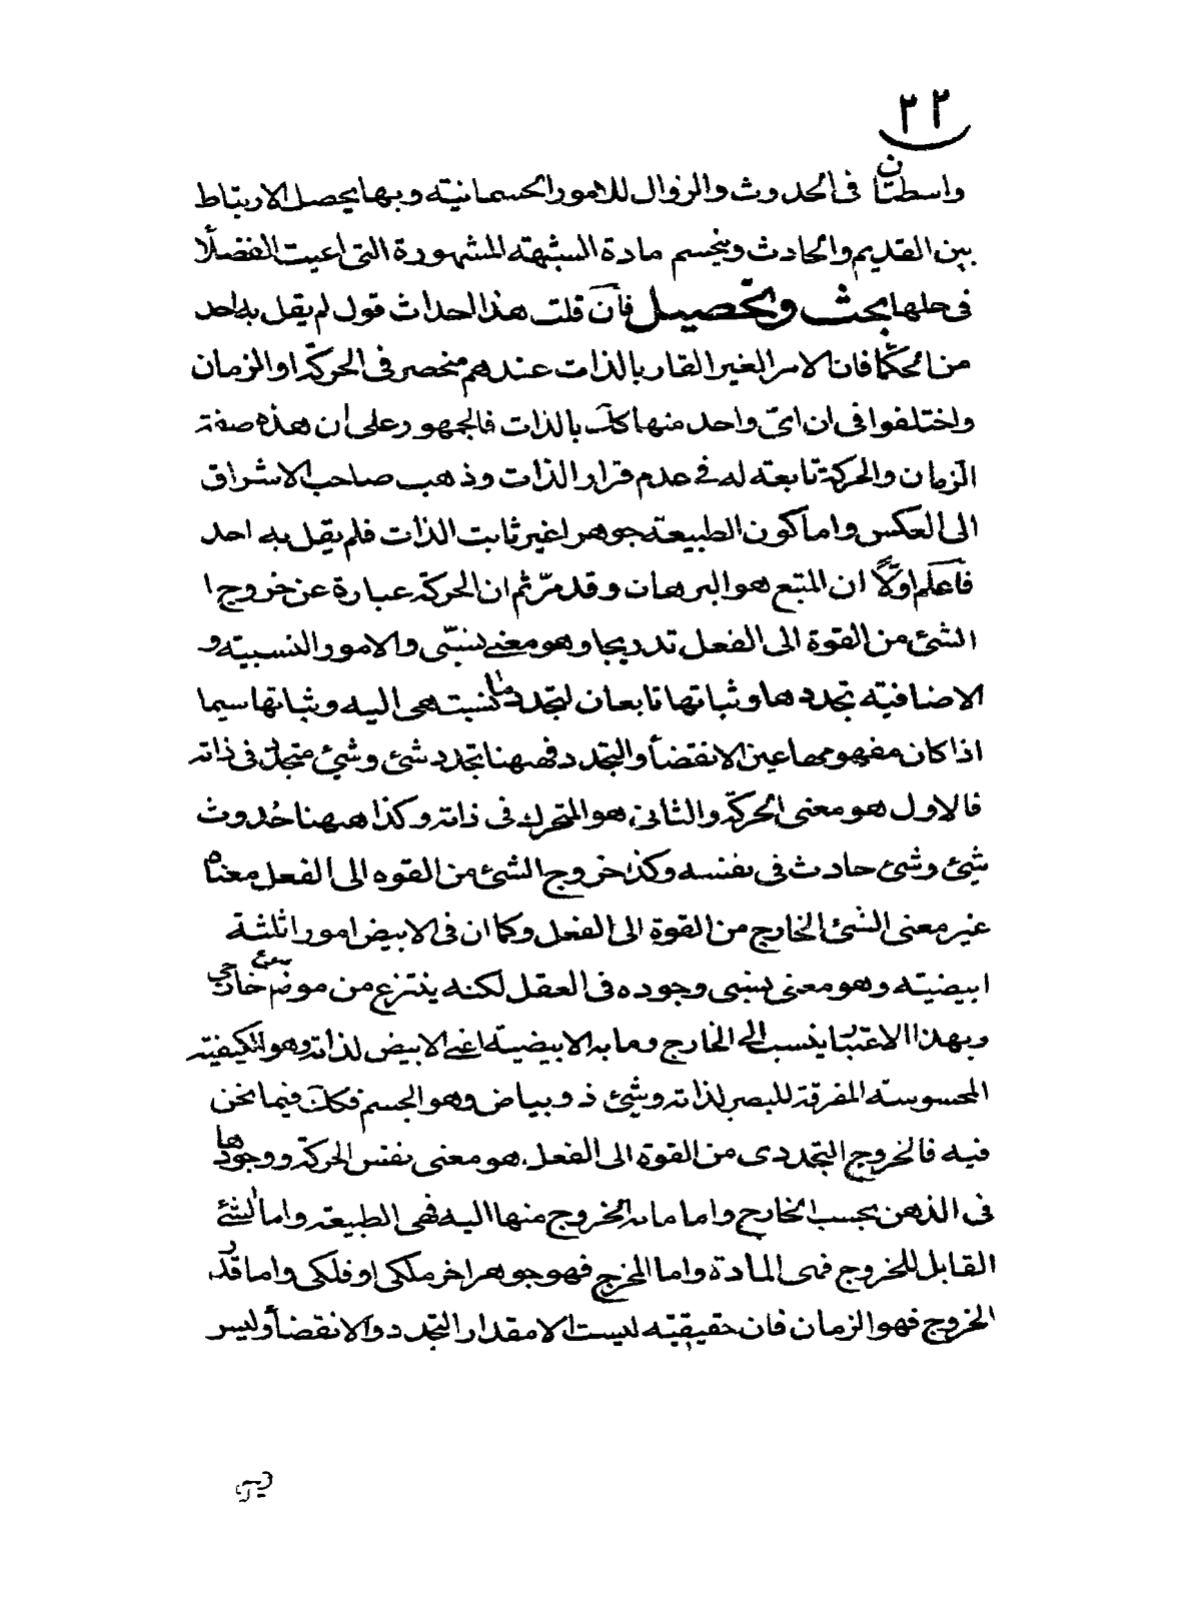 ٢٢
واسطتان فى الحدوث والزوال للامور الجسمانيته وبها يحصل الارتباط
بين القديم والحادث وينحسم مادة الشبهته المشهورة التى اعيت الفضلأ
فى حلها بحث وتحصيل فآن قلت هذا احداث قول لم يقل به احد
من الحكمأ فان الامر الغير القار بالذات عندهم منحصر فى الحركة او الزمان
واختلفوا فى ان اىّ واحد منها كك بالذات فالجمهور على ان هذه صفة
الزمان والحركة تابعته له فى عدم قرار الذات وذهب صاحب الاشراق
الى العكس واما كون الطبيعة جوهرا غير ثابت الذات فلم يقل به احد
فآعلم اولًا ان المتبع هو البرهان وقد مرّ ثم ان الحركة عبارة عن خروج ا
الشئ من القوة الى الفعل تدريجا وهو معنے نسبّى والامور النسبيته و
الاضافيته تجددها وثباتها تابعان لتجدد ما نسبت هى اليه وثباتها سيما
اذا كان مفهومها عين الانقضأ والتجدد فههنا تجدد شئ وشئ متجدد فى ذاته
فالاول هو معنى الحركة والثانى هو المتحرك فى ذاته وكذا ههنا حُدوث
شئ وشئ حادث فى نفسه وكذا خروج الشئ من القوه الى الفعل معناه
غير معنى الشئ الخارج من القوة الى الفعل وكما ان فى الابيض امورا ثلثة
ابيضيته وهو معنى نسبى وجوده فى العقل لكنه ينتزع من موضع خارجى
وبهذا الاعتبار ينسب الى الخارج وما به الابيضية اعنے الابيض لذاته وهو الكيفيته
المحسوسته المفرقة للبصر لذاته وشئ ذو بياض وهو الجسم فكك فيما نحن
فيه فالخروج التجددى من القوة الى الفعل هو معنى نفس الحركة ووجودها
فى الذهن بحسب الخارج واما ما به الخروج منها اليه فهى الطبيعة واما الشئ
القابل للخروج فهى المادة واما المخرج فهو جوهر اخر ملكى او فلكى واما قدر
الخروج فهو الزمان فان حقيقيته ليست الا مقدار التجدد والانقضأ وليس